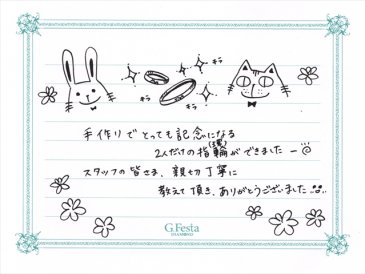 キラ
キラ
手作りでとっても記念になる
2人だけの指輪ができました
スタッフの皆さま、親切丁寧に
教えて頂き、ありがとうございました
G.Festa
DIAMOND